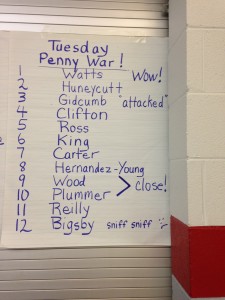 Tuesday
Penny War!
1 Watts Wow!
2 Huneycutt
3 Gidcumb "attacked"
4 Clifton
5 Ross
6 King
7 Carter
8 Hernandez-Young
9 Wood
close!
10 Plummer
11 Reilly
12 Bigsby sniff sniff